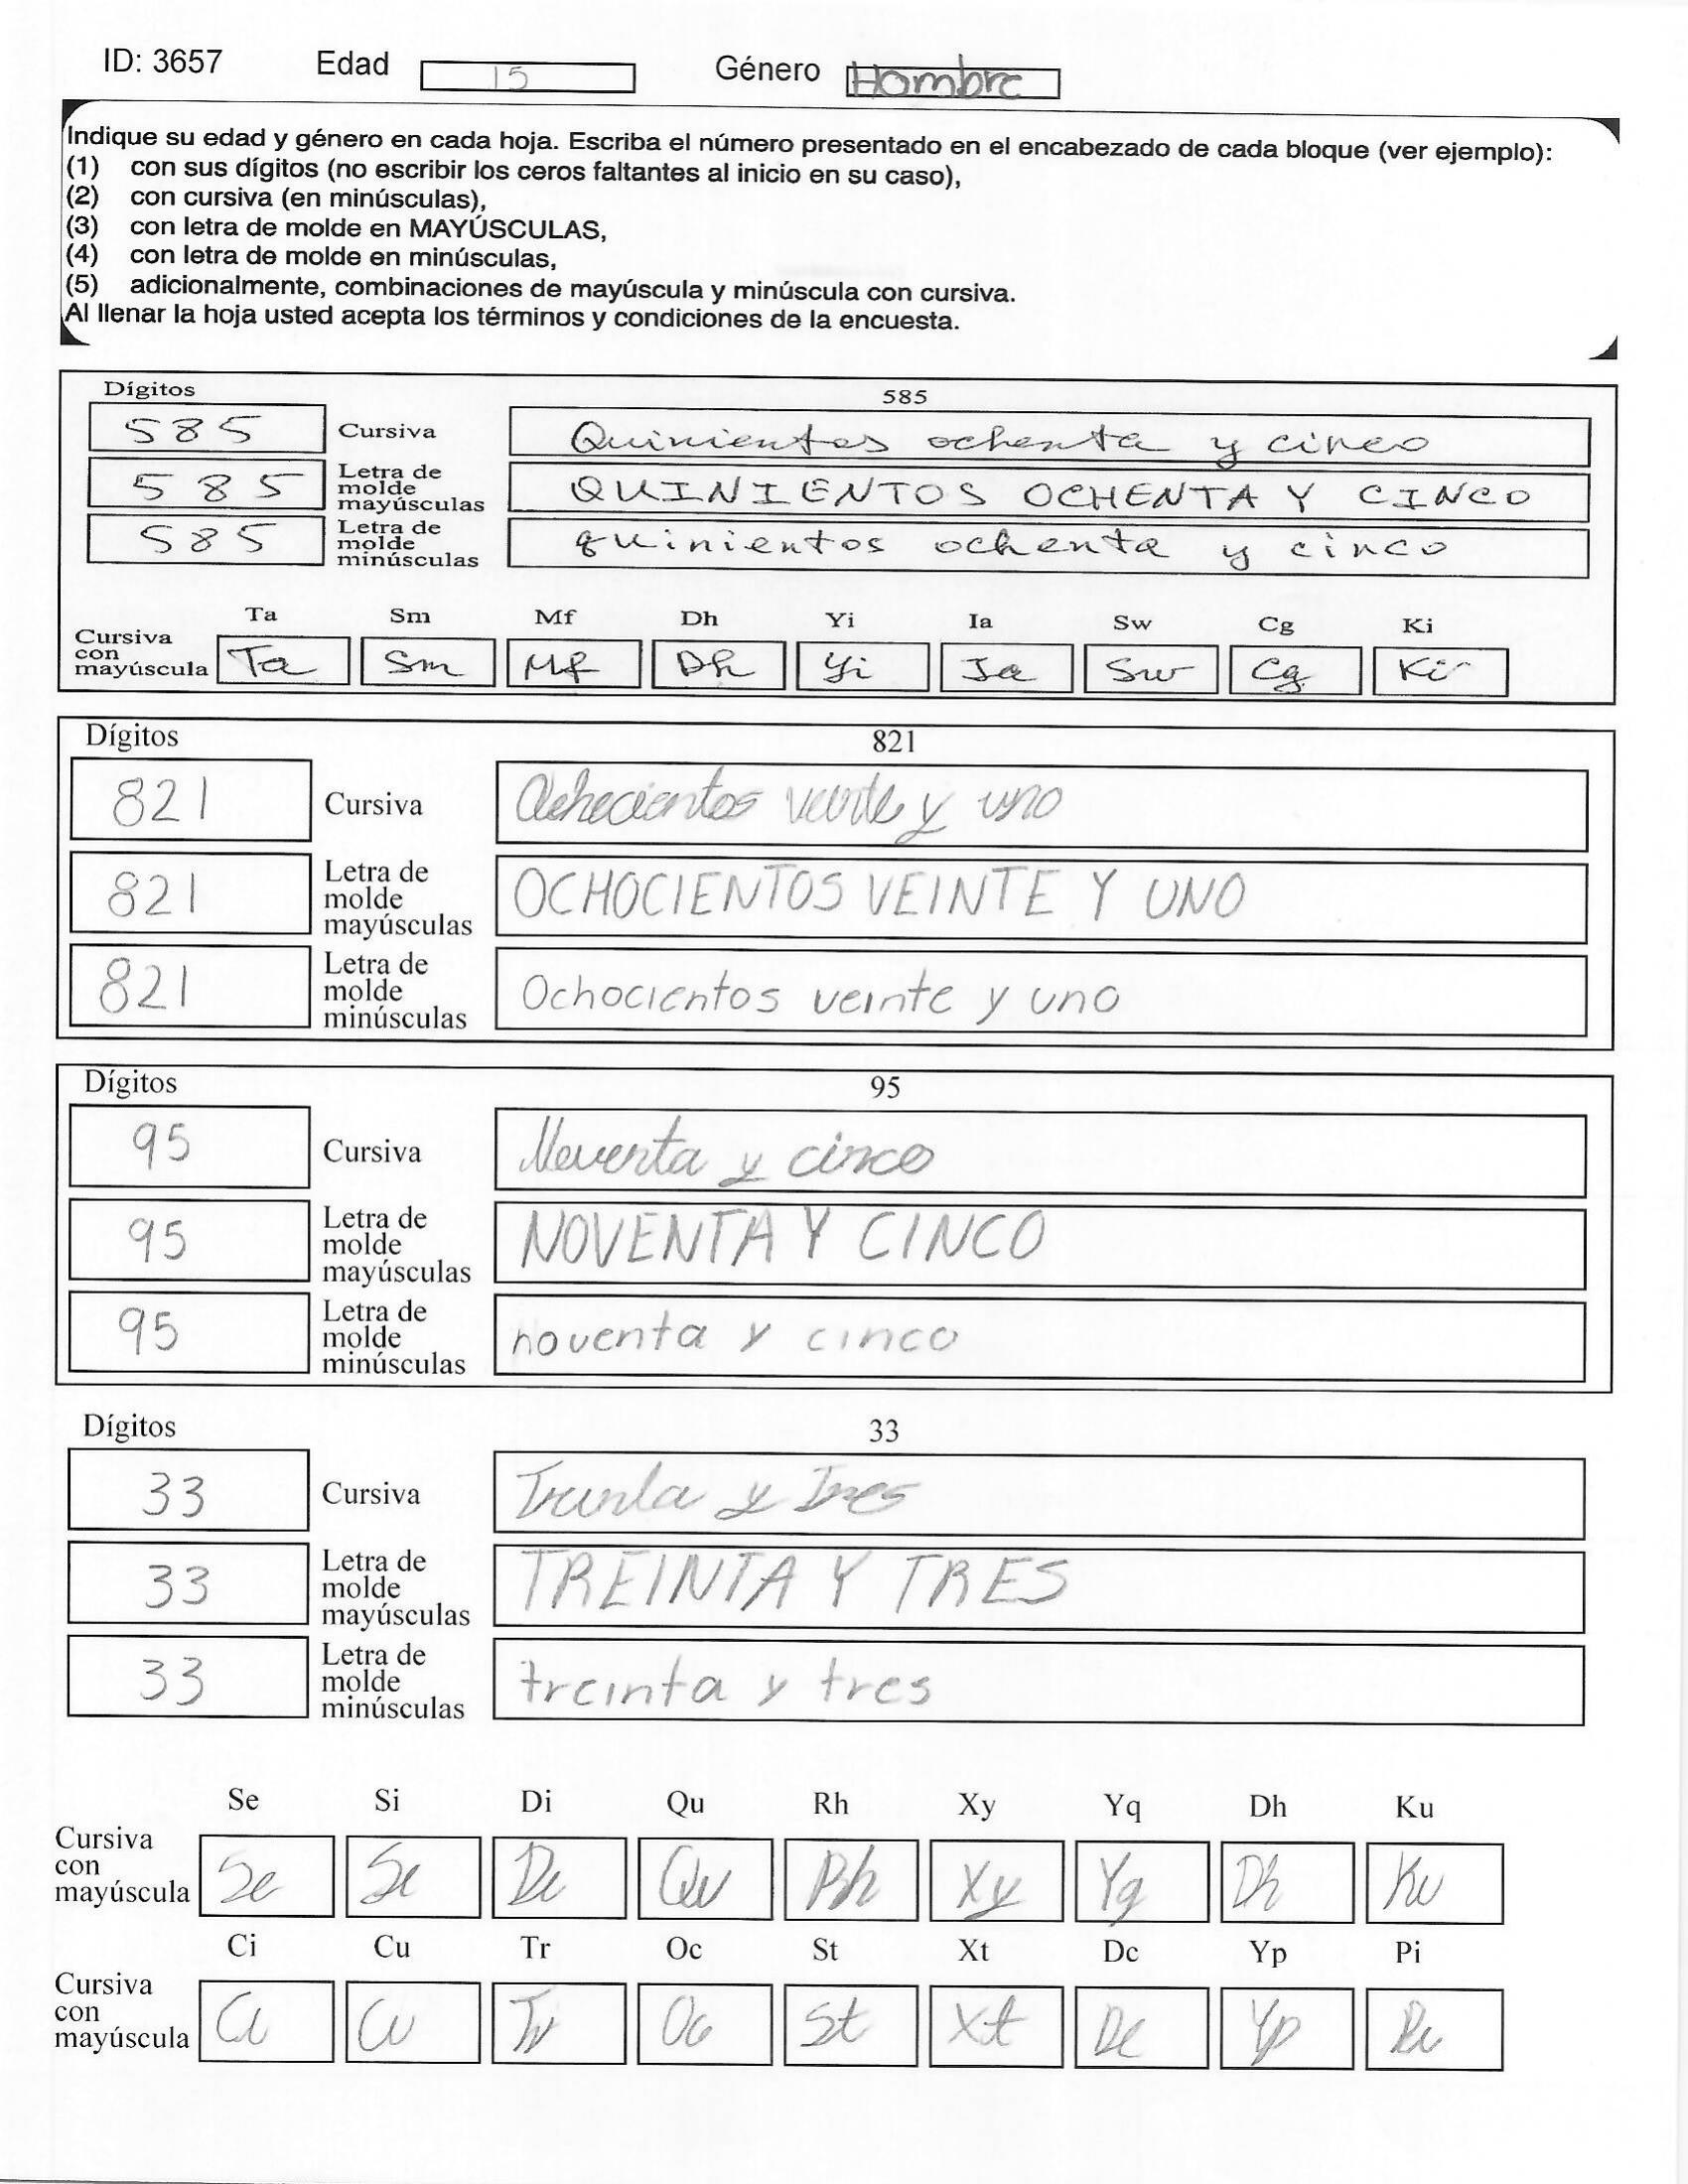 ID: 3657 Edad 15 Género Hombre
Indique su edad y género en cada hoja. Escriba el número presentado en el encabezado de cada bloque (ver ejemplo):
(1) con sus dígitos (no escribir los ceros faltantes al inicio en su caso),
(2) con cursiva (en minúsculas),
(3) con letra de molde en MAYÚSCULAS,
(4) con letra de molde en minúsculas,
(5) adicionalmente, combinaciones de mayúscula y minúscula con cursiva.
Al llenar la hoja usted acepta los términos y condiciones de la encuesta.
Dígitos 585
585 Cursiva Quinientos ochenta y cinco
585 Letra de molde mayúsculas QUINIENTOS OCHENTA Y CINCO
585 Letra de molde minúsculas quinientos ochenta y cinco
Ta Sm Mf Dh Yi Ia Sw Cg Ki
Cursiva con mayúscula Ta Sm Mf Dh Yi Ia Sw Cg Ki
Dígitos 821
821 Cursiva Ochocientos veinte y uno
821 Letra de molde mayúsculas OCHOCIENTOS VEINTE Y UNO
821 Letra de molde minúsculas Ochocientos veinte y uno
Dígitos 95
95 Cursiva Noventa y cinco
95 Letra de molde mayúsculas NOVENTA Y CINCO
95 Letra de molde minúsculas noventa y cinco
Dígitos 33
33 Cursiva Treinta y Tres
33 Letra de molde mayúsculas TREINTA Y TRES
33 Letra de molde minúsculas treinta y tres
Se Si Di Qu Rh Xy Yq Dh Ku
Cursiva con mayúscula Se Si Di Qu Rh Xy Yq Dh Ku
Ci Cu Tr Oc St Xt Dc Yp Pi
Cursiva con mayúscula Ci Cu Tr Oc St Xt Dc Yp Pi